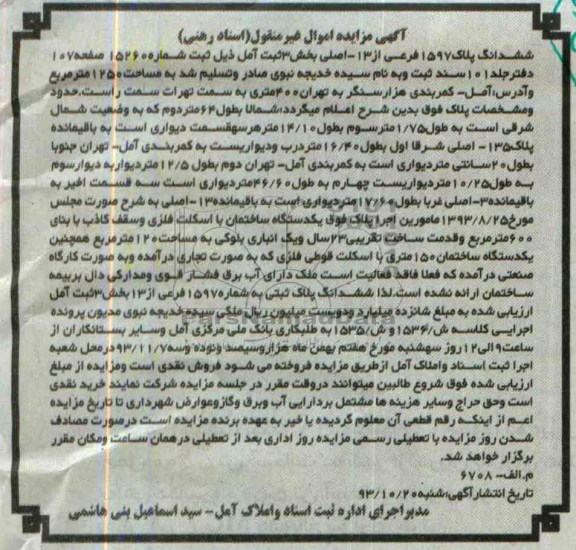 آگهی مزایده اموال غیرمنقول(اسناد رهنی)
ششدانگ پلاک۱۵۹۷فرعی از۱۳-اصلی بخش۳ثبت آمل ذیل ثبت شماره۱۵۲۶۰ صفحه۱۰۷
دفترجلد۱۰۱سند ثبت وبه نام سیده خدیجه نبوی صادر وتسلیم شد به مساحت۱۲۵۰مترمربع
وآدرس:آمل- کمربندی هزارسنگر به تهران۴۰۰متری به سمت تهرات سمت راست.حدود
ومشخصات پلاک فوق بدین شرح اعلام میگردد:شمالا بطول۶۴متردوم که به وضعیت شمال
شرقی است به طول۱/۷۵مترسوم بطول۱۴/۱۰مترهرسهقسمت دیواری است به باقیمانده
پلاک۱۳۵- اصلی شرقا اول بطول۱۶/۴۰متردرب ودیواریست به کمربندی آمل- تهران جنوبا
بطول۲۰سانتی متردیواری است به کمربندی آمل- تهران دوم بطول ۱۲/۵ متردیواربه دیوارسوم
به طول۱۰/۲۵متردیواریست چهارم به طول۴۶/۶۰متردیواری است سه قسمت اخیر به
باقیمانده۳-اصلی غربا بطول۱۷/۶۰متردیواری است به باقیمانده۱۳-اصلی به شرح صورت مجلس
مورخ۱۳۹۳/۸/۲۵مامورین اجرا پلاک فوق یکدستگاه ساختمان با اسکلت فلزی وسقف کاذب با بنای
۶۰۰مترمربع وقدمت ساخت تقریبی۲۳سال ویک انباری بلوکی به مساحت۱۲۰مترمربع همچنین
یکدستگاه ساختمان۱۵۰متری با اسکلت قوطی فلزی که به صورت تجاری درآمده وبه صورت کارگاه
صنعتی درآمده که فعلا فاقد فعالیت است ملک دارای آب برق فشار قوی ومدارکی دال بربیمه
ساختمان ارائه نشده است.لذا ششدانگ پلاک ثبتی به شماره۱۵۹۷فرعی از۱۳بخش۳ثبت آمل
ارزیابی شده به مبلغ شانزده میلیارد ودویست میلیون ریال ملکی سیده خدیجه نبوی مدیون پرونده
اجرایی کلاسه ش/۱۵۳۶و ش/۱۵۳۵به طلبکاری بانک ملی مرکزی آمل وسایر بستانکاران از
ساعت۹الی۱۲روز سهشنبه مورخ هفتم بهمن ماه هزاروسیصد ونوده وسه۹۳/۱۱/۷درمحل شعبه
اجرا ثبت اسناد واملاک آمل ازطریق مزایده فروخته می شود فروش نقدی است ومزایده از مبلغ
ارزیابی شده فوق شروع طالبین میتوانند دروقت مقرر در جلسه مزایده شرکت نمایند خرید نقدی
است وحق حراج وسایر هزینه ها مشتمل بردارایی آب وبرق وگازوعوارض شهرداری تا تاریخ مزایده
اعم از اینکه رقم قطعی آن معلوم گردیده یا خیر به عهده برنده مزایده است درصورت مصادف
شدن روز مزایده با تعطیلی رسمی مزایده روز اداری بعد از تعطیلی درهمان ساعت ومکان مقرر
برگزار خواهد شد.
م.الف- ۶۷۰۸
تاریخ انتشارآگهی:شنبه۹۳/۱۰/۲۰
مدیراجرای اداره ثبت اسناد واملاک آمل- سید اسماعیل بنی هاشمی